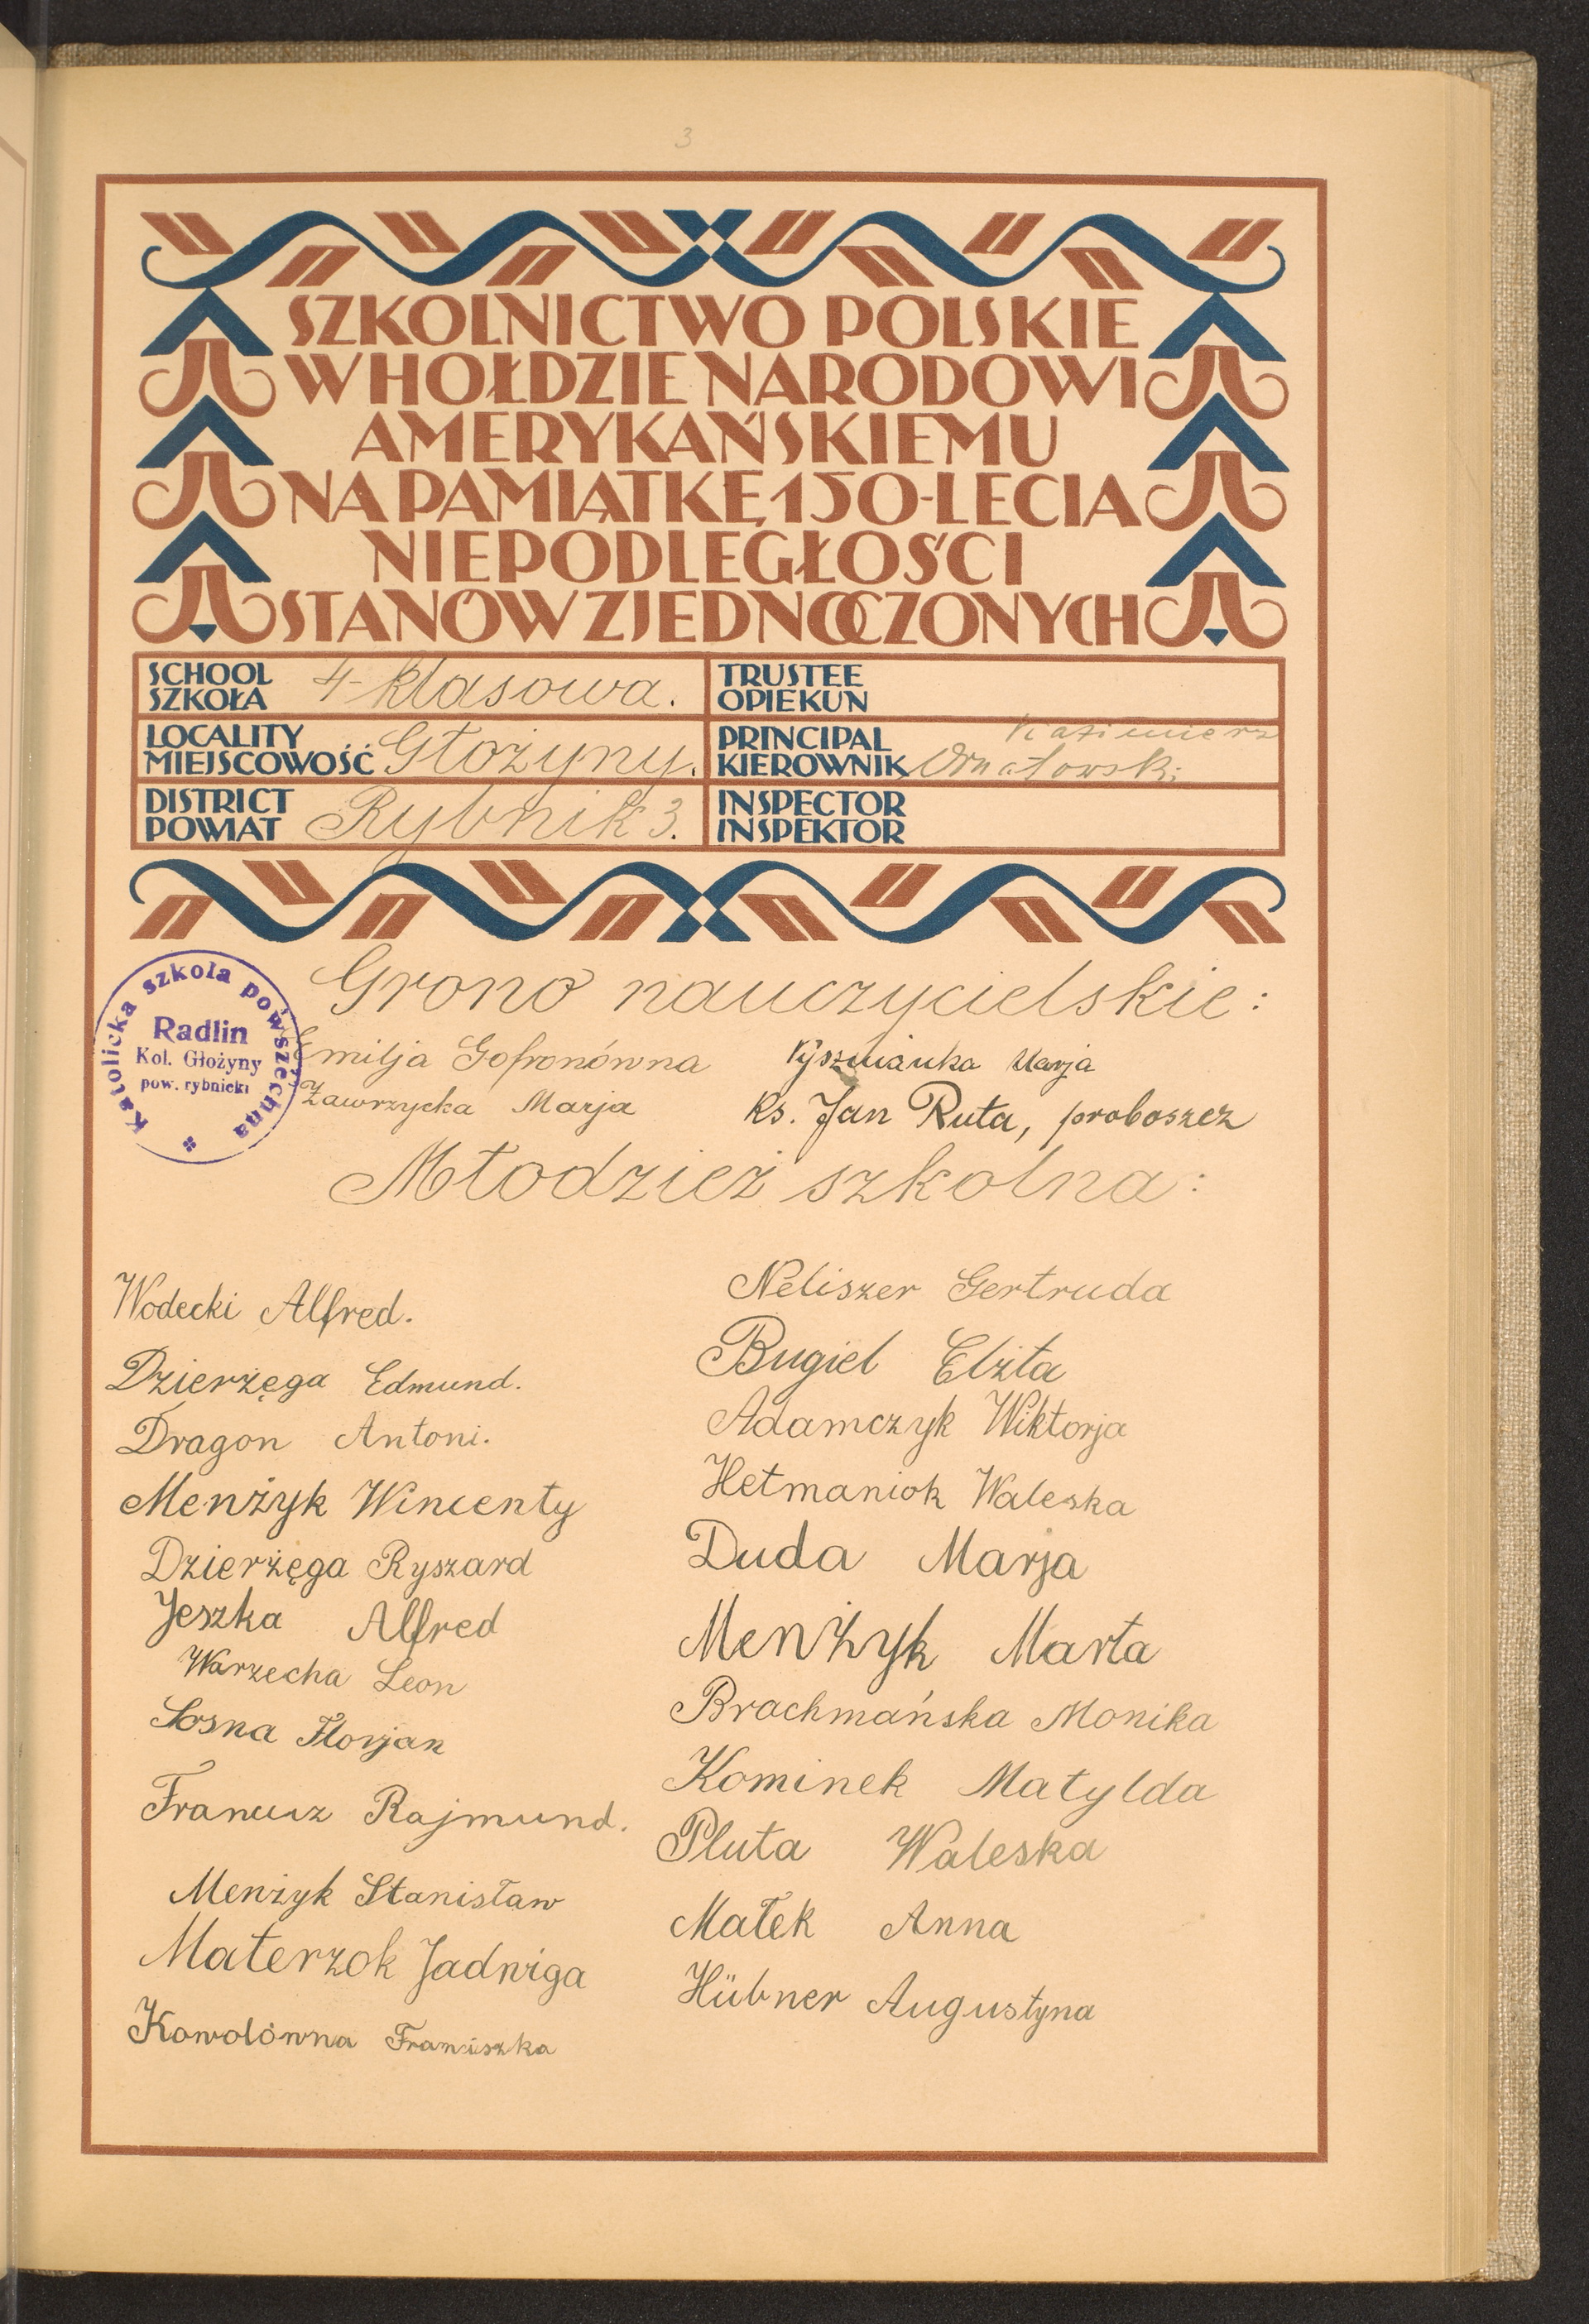 3
SZKOLNICTWO POLSKIE
W HOŁDZIE NARODOWI
AMERYKAŃSKIEMU
NA PAMIĄTKĘ 150-LECIA
NIEPODLEGŁOŚCI
STANÓW ZJEDNOCZONYCH
SCHOOL
SZKOŁA 4-klasowa.
TRUSTEE
OPIEKUN
LOCALITY
MIEJSCOWOŚĆ Głożyny.
PRINCIPAL Kazimierz
KIEROWNIK Ornatowski
DISTRICT
POWIAT Rybnik 3.
INSPECTOR
INSPEKTOR
Katolicka szkoła powszechna
Radlin
Kol. Głożyny
pow. rybnicki
Grono nauczycielskie:
Emilja Gofronówna
Marja
Zawrzycka Marja
Ks. Jan Ruta, proboszcz
Młodzież szkolna:
Wodecki Alfred.
Dzierżęga Edmund.
Dragon Antoni.
Menżyk Wincenty
Dzierżęga Ryszard
Jeszka Alfred
Warzecha Leon
Sosna Florjan
Francuz Rajmund.
Menżyk Stanisław
Materzok Jadwiga
Kowolówna Franciszka
Neliszer Gertruda
Bugiel Elżta
Adamczyk Wiktorja
Hetmaniok Waleska
Duda Marja
Menżyk Marta
Brachmańska Monika
Kominek Matylda
Pluta Waleska
Małek Anna
Hübner Augustyna